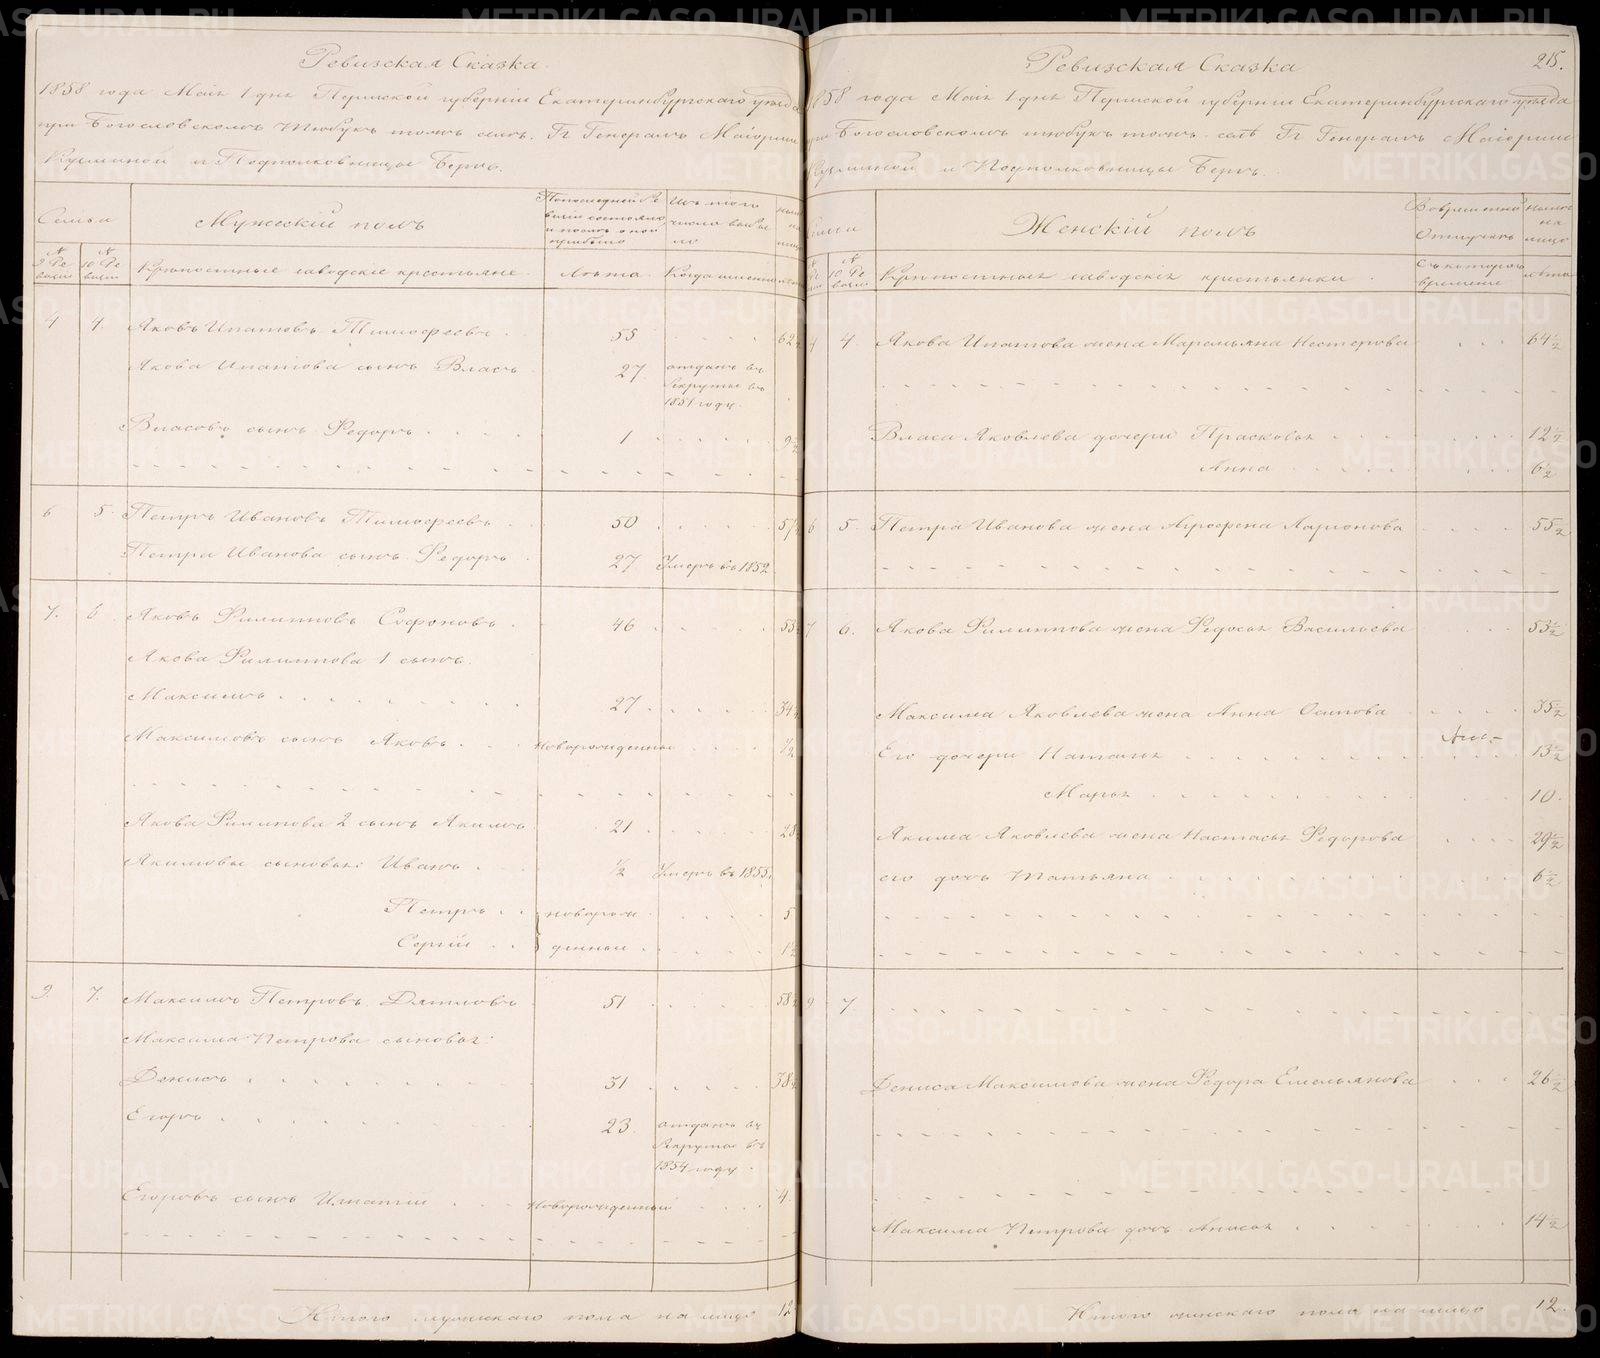 Ревизская Сказка.
1858 года Маія 1 дня Пермской губерніи Екатеринбургскаго уѣзда
при Богословскомъ Тюбукъ тожъ селѣ. Гг Генералъ Маіорши
Кузьминой и Подполковницы Бергъ.
Семьи
Мужескій полъ
По последней Ре
визіи состояло
и послѣ оной
прибыло
Изъ того
числа выбы
ло
№
9 Ре
визіи
№
10 Ре
визіи
Крѣпостные заводскіе крестьяне.
Лѣта.
Когда именно
4 4. Яковъ Ипатовъ Тимофеевъ 55 62½
Якова Ипатова сынъ Власъ 27 отданъ въ
рекруты въ
1851 году.
Власовъ сынъ Федоръ 1 9½
6 5. Петръ Ивановъ Тимофеевъ 50
Петра Иванова сынъ Федоръ 27 Умеръ въ 1852
7. 6 Яковъ Филипповъ Софоновъ 46 53½
Якова Филиппова 1 сынъ
Максимъ 27 34½
Максимовъ сынъ Яковъ Новорожденный ½
Якова Филипова 2 сынъ Акимъ 21 28
Акимовы сыновья: Иванъ ½ Умеръ въ 1855.
Петръ новорож 5
Сергій денныи 1½
9. 7. Максимъ Петровъ Дятловъ 51 58½
Максима Петрова сыновья:
Денисъ 31 38½
Егоръ 23 отданъ въ
Рекруты въ
1854 году
Егоровъ сынъ Игнатій Новорожденный 4.
Итого мужескаго пола на лицо 12
Ревизская Сказка
215.
1858 года Маія 1 дня Пермской губерніи Екатеринбургскаго уѣзда
при Богословскомъ Тюбукъ тожъ селѣ Гг Генералъ Маіорши
Кузьминой и Подполковницы Бергъ.
Семьи
Женскій полъ
Во временной
Отлучкѣ
на
лицо
10 Ре
визіи
Крѣпостныя заводскія крестьянки.
Съ котораго
времени
лѣта
4 4. Якова Ипатова жена Маремьяна Нестерова 64½
Власа Яковлева дочери Прасковья 12½
Анна 6½
6 5. Петра Иванова жена Агрофена Ларионова 55½
7 6. Якова Филиппова жена Федосья Васильева 53½
Максима Яковлева жена Анна Осипова 35½
Его дочери Наталья 13½
Марья 10.
Якима Яковлева жена Настасья Федорова 29½
его дочь Татьяна 6½
9 7
Дениса Максимова жена Федора Емельянова 26½
Максима Петрова дочь Анисья 14½
Итого женскаго пола на лицо 12.
METRIKI.GASO-URAL.RU